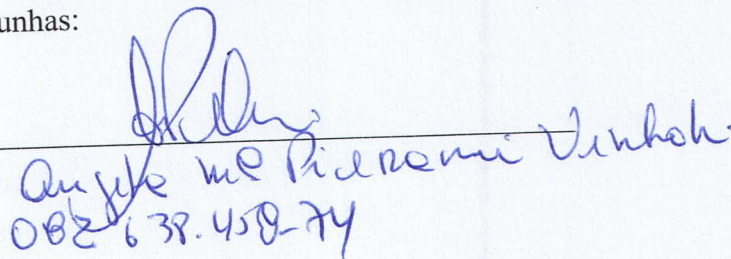 unhas:
Angela Mª Pierzami Venhoh.
082 638.458-74